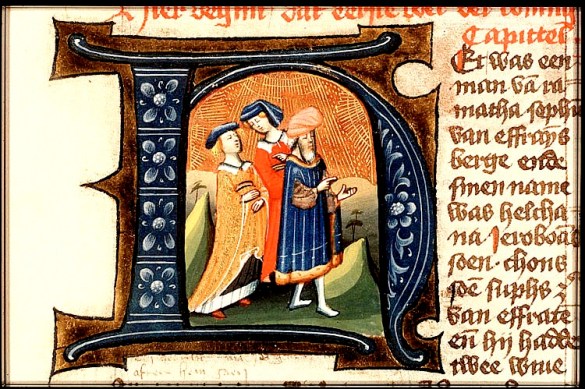 Hier begint dat eerste boec der coning
Capittel
Et was een
man vā ra
matha sephi
van effrays
berge ende
sinen name
was helcha
na Jeroboās
soen · chons
suphs
van effrate
eñ hij hadde
twee wiue